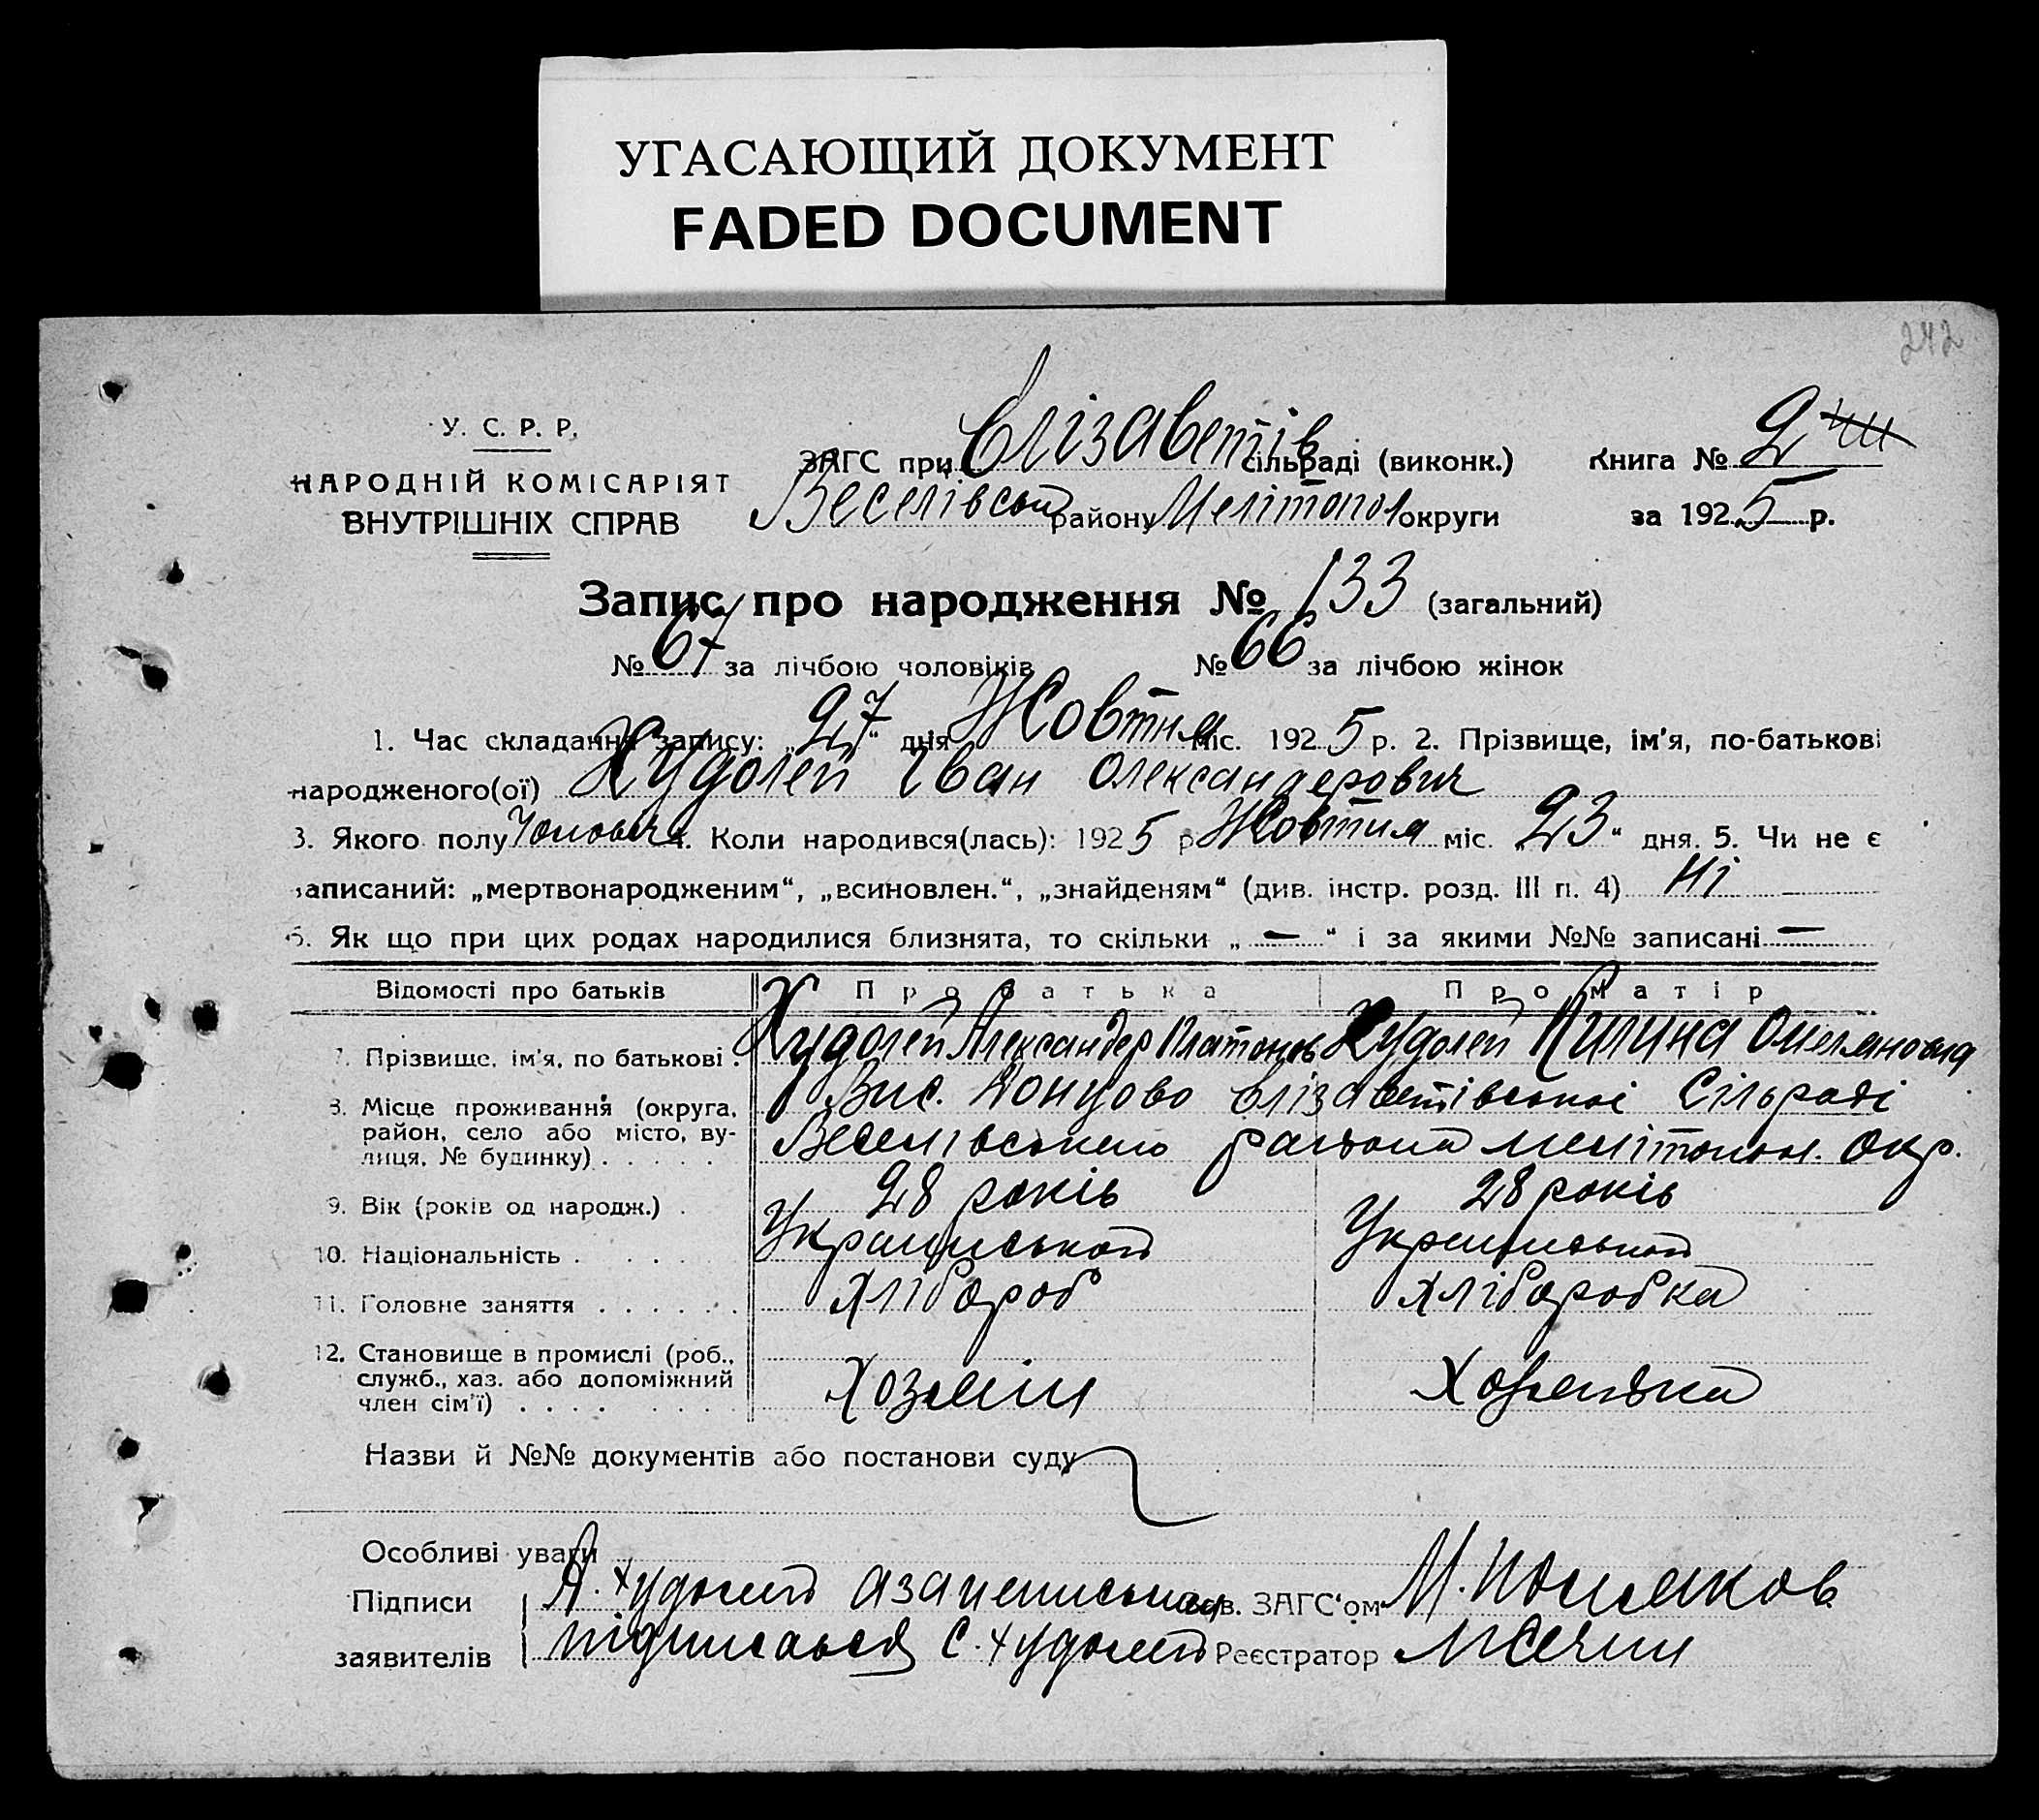 УГАСАЮЩИЙ ДОКУМЕНТ
FADED DOCUMENT
242
У. С. Р. Р.
НАРОДНІЙ КОМІСАРІЯТ
ВНУТРІШНІХ СПРАВ
ЗАГС при Єлізаветів сільраді (виконк.) Книга № 2
Веселівськ району Мелітопол округи за 1925 р.
Запис про народження № 133 (загальний)
№ 67 за лічбою чоловіків № 66 за лічбою жінок
1. Час складання запису: „27“ дня Жовтня міс. 1925 р. 2. Прізвище, ім'я, по-батькові
народженого(ої) Худолей Іван Олександерович
3. Якого полу Чоловіч 4. Коли народився(лась): 1925 р. Жовтня міс. „23“ дня. 5. Чи не є
записаний: „мертвонародженим“, „всиновлен.“, „знайденям“ (див. інстр. розд. III п. 4) Ні
6. Як що при цих родах народилися близнята, то скільки „ — “ і за якими №№ записані —
Відомості про батьків Про батька Про матір
7. Прізвище, ім'я, по батькові . Худолей Александер Платонов Худолей Килина Омеляновна
8. Місце проживання (округа, район, село або місто, вулиця, № будинку) . . . . . Вис. Донцово Єлізаветівської Сільраді
Веселівського району мелітопол. окр.
9. Вік (років од народж.) . 28 років 28 років
10. Національність . . . . . Української Української
11. Головне заняття . . . . . . Хлібороб Хліборобка
12. Становище в промислі (роб., служб., хаз. або допоміжний член сім'ї) . . . . . . . . Хозяїн Хозяйка
Назви й №№ документів або постанови суду
Особливі уваги
Підписи А. Худолей Зав. ЗАГС'ом М. Поляков
заявителів підписався С. Худолей Реєстратор